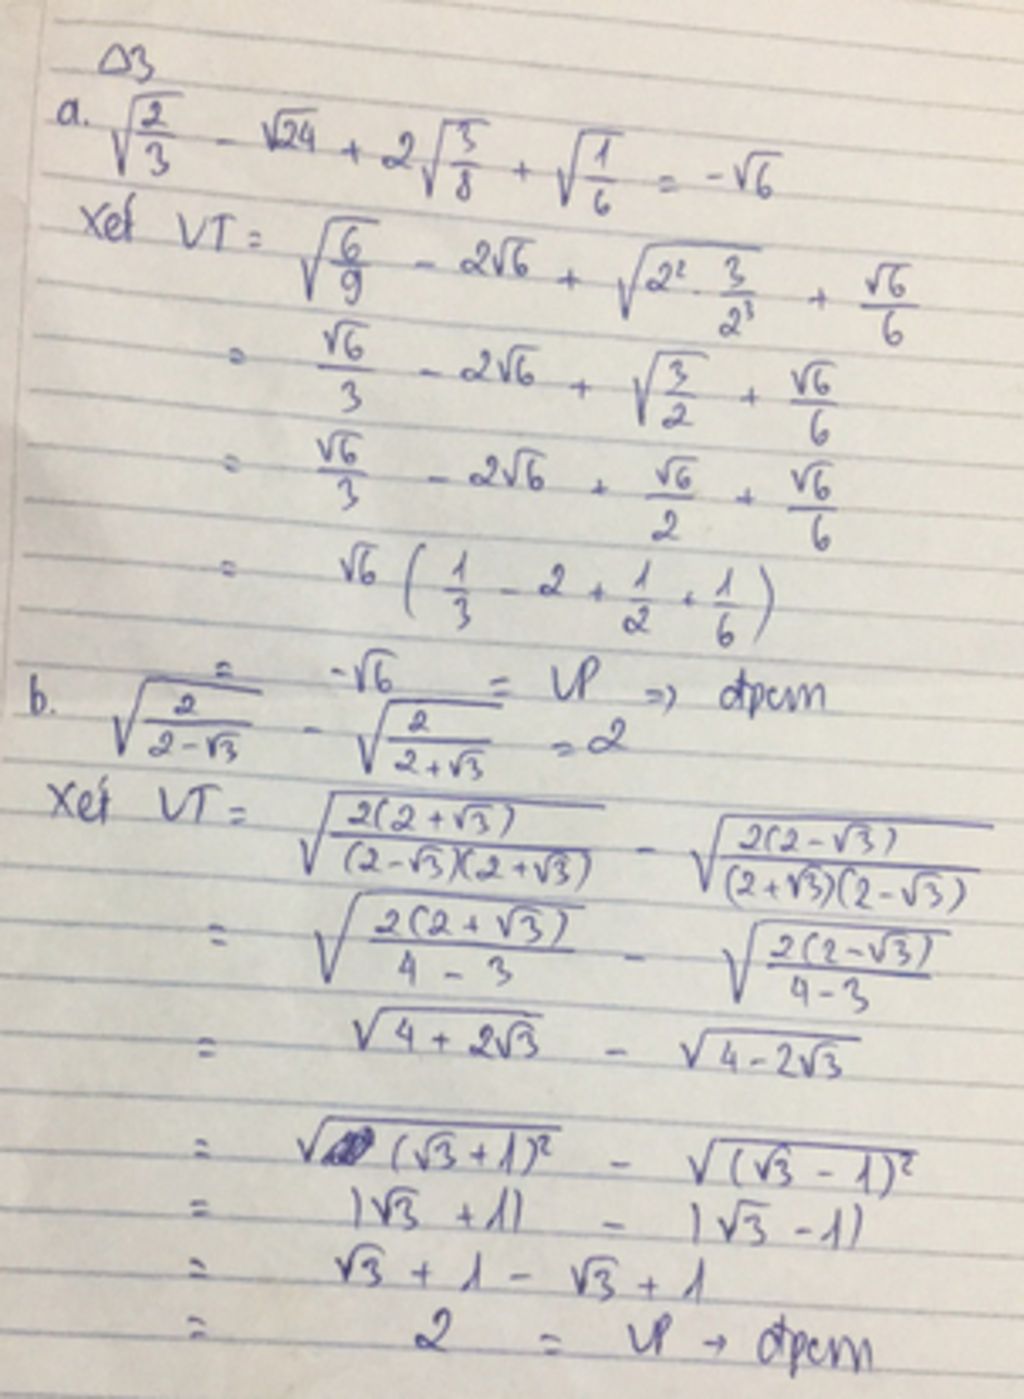 Δ3
a. √(2/3) - √24 + 2√(3/8) + √(1/6) = -√6
Xét VT = √(6/9) - 2√6 + √(2² . 3/2³) + √6/6
= √6/3 - 2√6 + √(3/2) + √6/6
= √6/3 - 2√6 + √6/2 + √6/6
= √6 (1/3 - 2 + 1/2 + 1/6)
= -√6 = VP => đpcm
b. √(2/(2-√3)) - √(2/(2+√3)) = 2
Xét VT = √(2(2+√3)/((2-√3)(2+√3))) - √(2(2-√3)/((2+√3)(2-√3)))
= √(2(2+√3)/(4-3)) - √(2(2-√3)/(4-3))
= √(4+2√3) - √(4-2√3)
= √((√3+1)²) - √((√3-1)²)
= |√3+1| - |√3-1|
= √3 + 1 - √3 + 1
= 2 = VP → đpcm